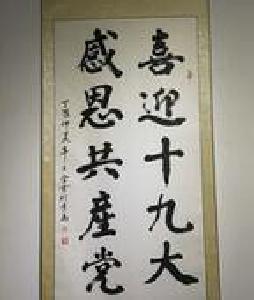 喜迎十九大
感恩共產党
丁酉仲夏